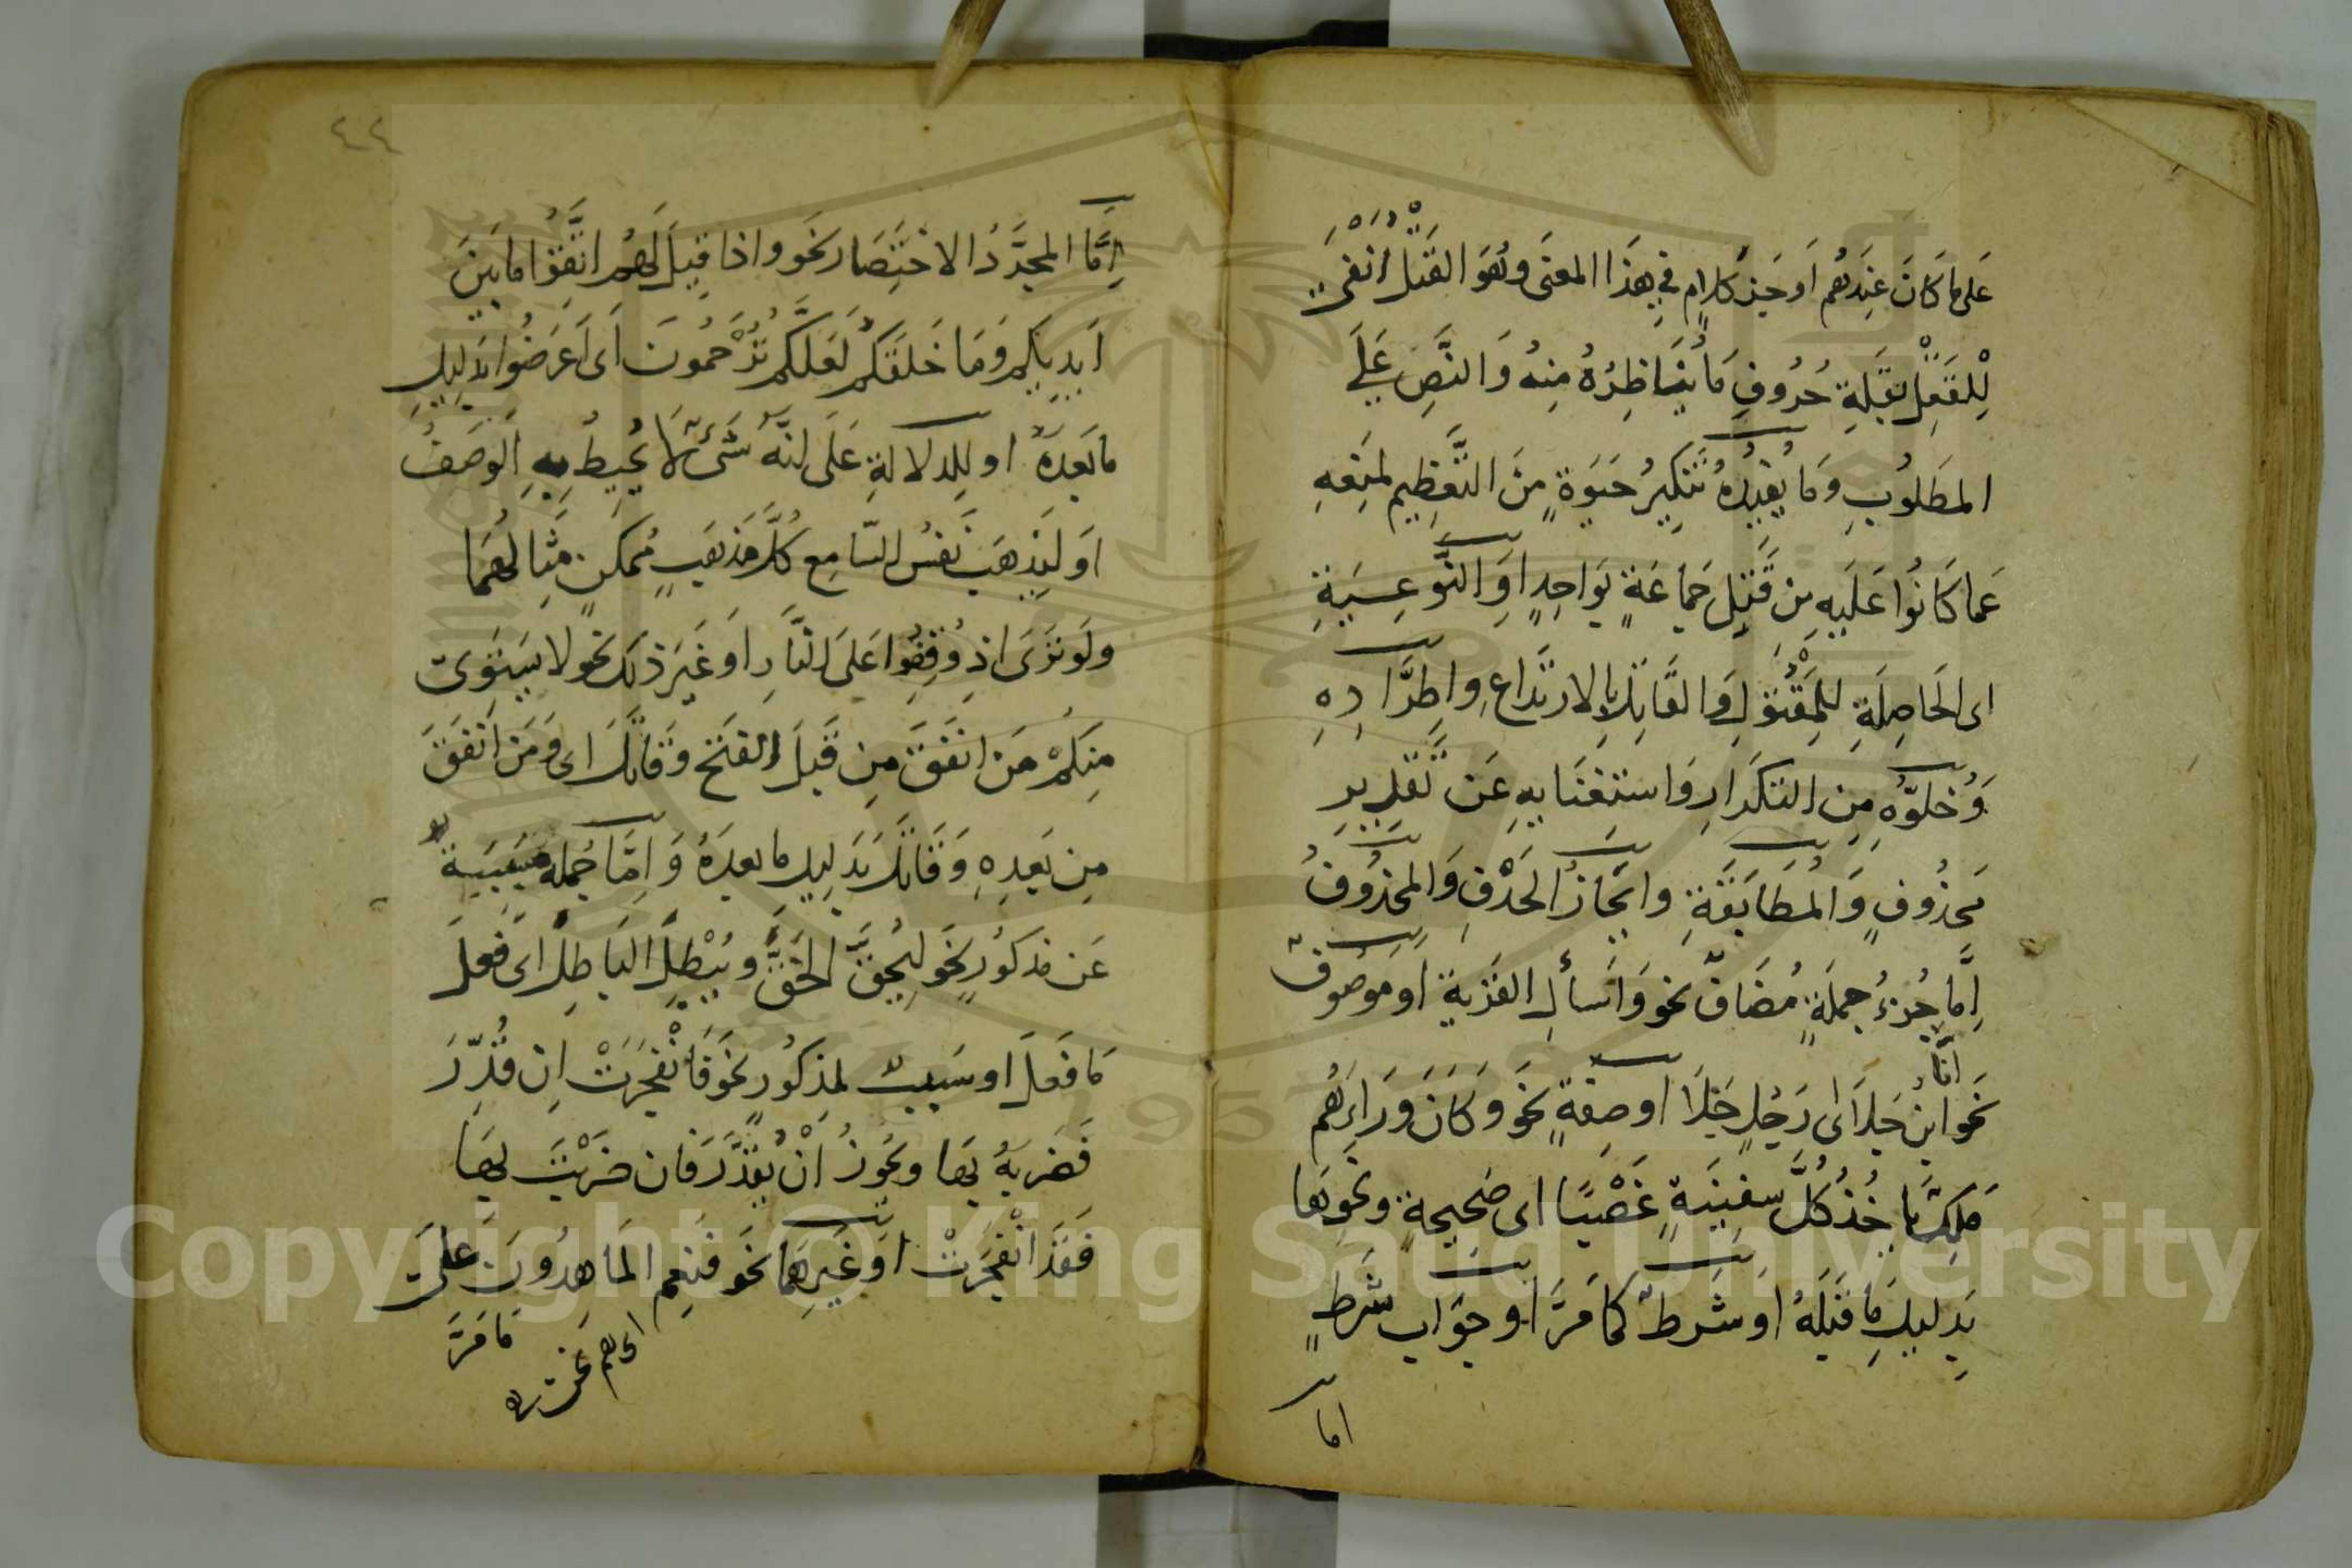 عَلى مَا كَانَ عِنْدَهُم اَوجَزَ كَلَامٍ فِي هَذَا المعنى وهُوَ القَتْلُ اَنْفى
لِلْقَتْلِ بِقِلَّةِ حُرُوفِ مَا يُنَاظِرُهُ مِنهُ وَالنَّصِّ عَلَى
المَطلُوبِ وَمَا يُفِيدُهُ تَنكِيرُ حَيَوةٍ مِنَ التَّعظِيمِ لمنعِهِ
عَما كَانُوا عَلَيهِ مِن قَتلِ جَمَاعَةٍ بِوَاحِدٍ اوِ النَّوعِيَّةِ
اى الحَاصِلَةِ لِلمَقْتُولِ وَالقَاتِلِ بِالارتِدَاعِ وَاطِّرَادِهِ
وَخُلُوِّهِ مِن التكرَارِ وَاستِغنَايهِ عَن تَقدِيرِ
مَحذُوفٍ وَالمُطَابَقَةِ وايجَازُ الحَذْفِ وَالمحذُوفُ
اِمَّا جُزءُ جملَةٍ مُضَافٌ نحو وَاسأَلِ القَريةَ اوموصُوفٌ
انَا
نحوابنُ جَلَا اى رَجُلٍ جَلَا اوصِفَةٌ نحَو وَكَانَ وَرَاءَهُم
مَلِكٌ يَاخُذُ كُلَّ سفِينَةٍ غَصْبًا اى صَحِيحةٍ ونحَوِهَا
بِدليلِ مَا قَبلَهُ اوشَرطٌ كمَا مَرَّ اوجَوَاب شَرطٍ
اما
٤٤
اِمَّا لمجرَّدِ الاختِصَار نحَو واذا قِيلَ لَهُم اتَّقُوا مَا بَينَ
اَيدِيكُم وَمَا خَلفَكُم لَعَلَّكُم تُرْحَمُونَ اَى اَعرَضُوا بدَلِيلِ
مَا بَعدَهُ اوللِدلالةِ عَلَى اَنَّهُ شَىءٌ لَا يُحِيطُ بِهِ الوَصفُ
اولِتَذهَبَ نَفسُ السَّامِعِ كُلَّ مَذهَبٍ مُمكنٍ مِثَالُهُمَا
ولَو تَرَى اذ وُقِفُوا عَلَى النَّارِ اوغَيرَ ذلكَ نحَو لا يَستَوِى
مِنكُمْ مَن انفَقَ مِن قَبلِ الفَتحِ وَقَاتَلَ اى وَمَن اَنفَقَ
مِن بَعدِهِ وَقَاتَلَ بدَلِيلِ مَا بعدَهُ وَاِمَّا جُملَةٌ مُسَبَّبَةٌ
عَن مَذكُورٍ نحَو لِيُحِقَّ الحَقَّ ويُبْطِلَ البَاطِلَ اى فَعلَ
مَا فَعَلَ اوسَبَبٌ لمذكُورٍ نحَو فَانْفَجَرَتْ اِن قُدِّرَ
فَضَربهُ بِهَا ويجُوزُ اَنْ يُقَدَّرَ فَان ضَرَبْتَ بِهَا
فَقَد انْفَجَرَتْ اوغَيرُهُمَا نحَو فَنِعمَ المَاهِدُونَ عَلَى
مَا مَرَّ
اى هم نحن